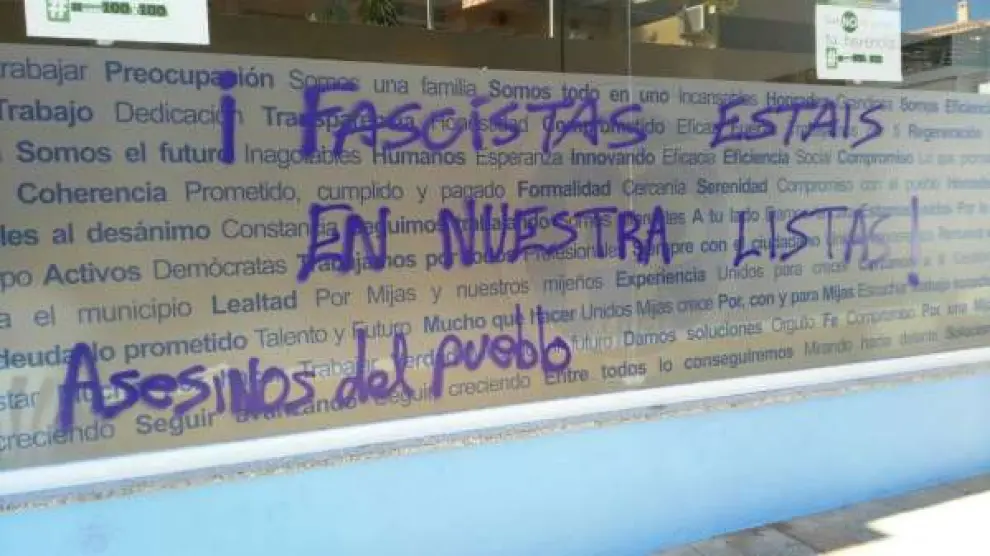 100x100
NO
tu herencia
100x100
trabajar Preocupación Somos una familia Somos todo en uno incansables Honradez Somos Eficiencia
Trabajo Dedicación Transparencia Honestidad Comprometido Eficacia Regeneración
¡ FASCISTAS ESTAIS
Somos el futuro Inagotables Humanos Esperanza Innovando Eficacia Eficiencia Social Compromiso Lo que
Coherencia Prometido, cumplido y pagado Formalidad Cercanía Serenidad Compromiso con el pueblo
les al desánimo Constancia Seguimos trabajando Somos A tu lado
EN NUESTRA LISTAS!
po Activos Demócratas Trabajamos por todos Profesionales Siempre con el ciudadano
a el municipio Lealtad Por Mijas y nuestros mijeños Experiencia Unidos para crecer
deuda lo prometido Talento y Futuro Mucho que Hacer Unidos Mijas crece Por, con y para Mijas Escuchar
Asesinos del pueblo
star Trabajar futuro Damos soluciones Orgullo Fe Compromiso Por una
creciendo Seguir avanzando Seguir creciendo Entre todos lo conseguiremos Mirando hacia delante